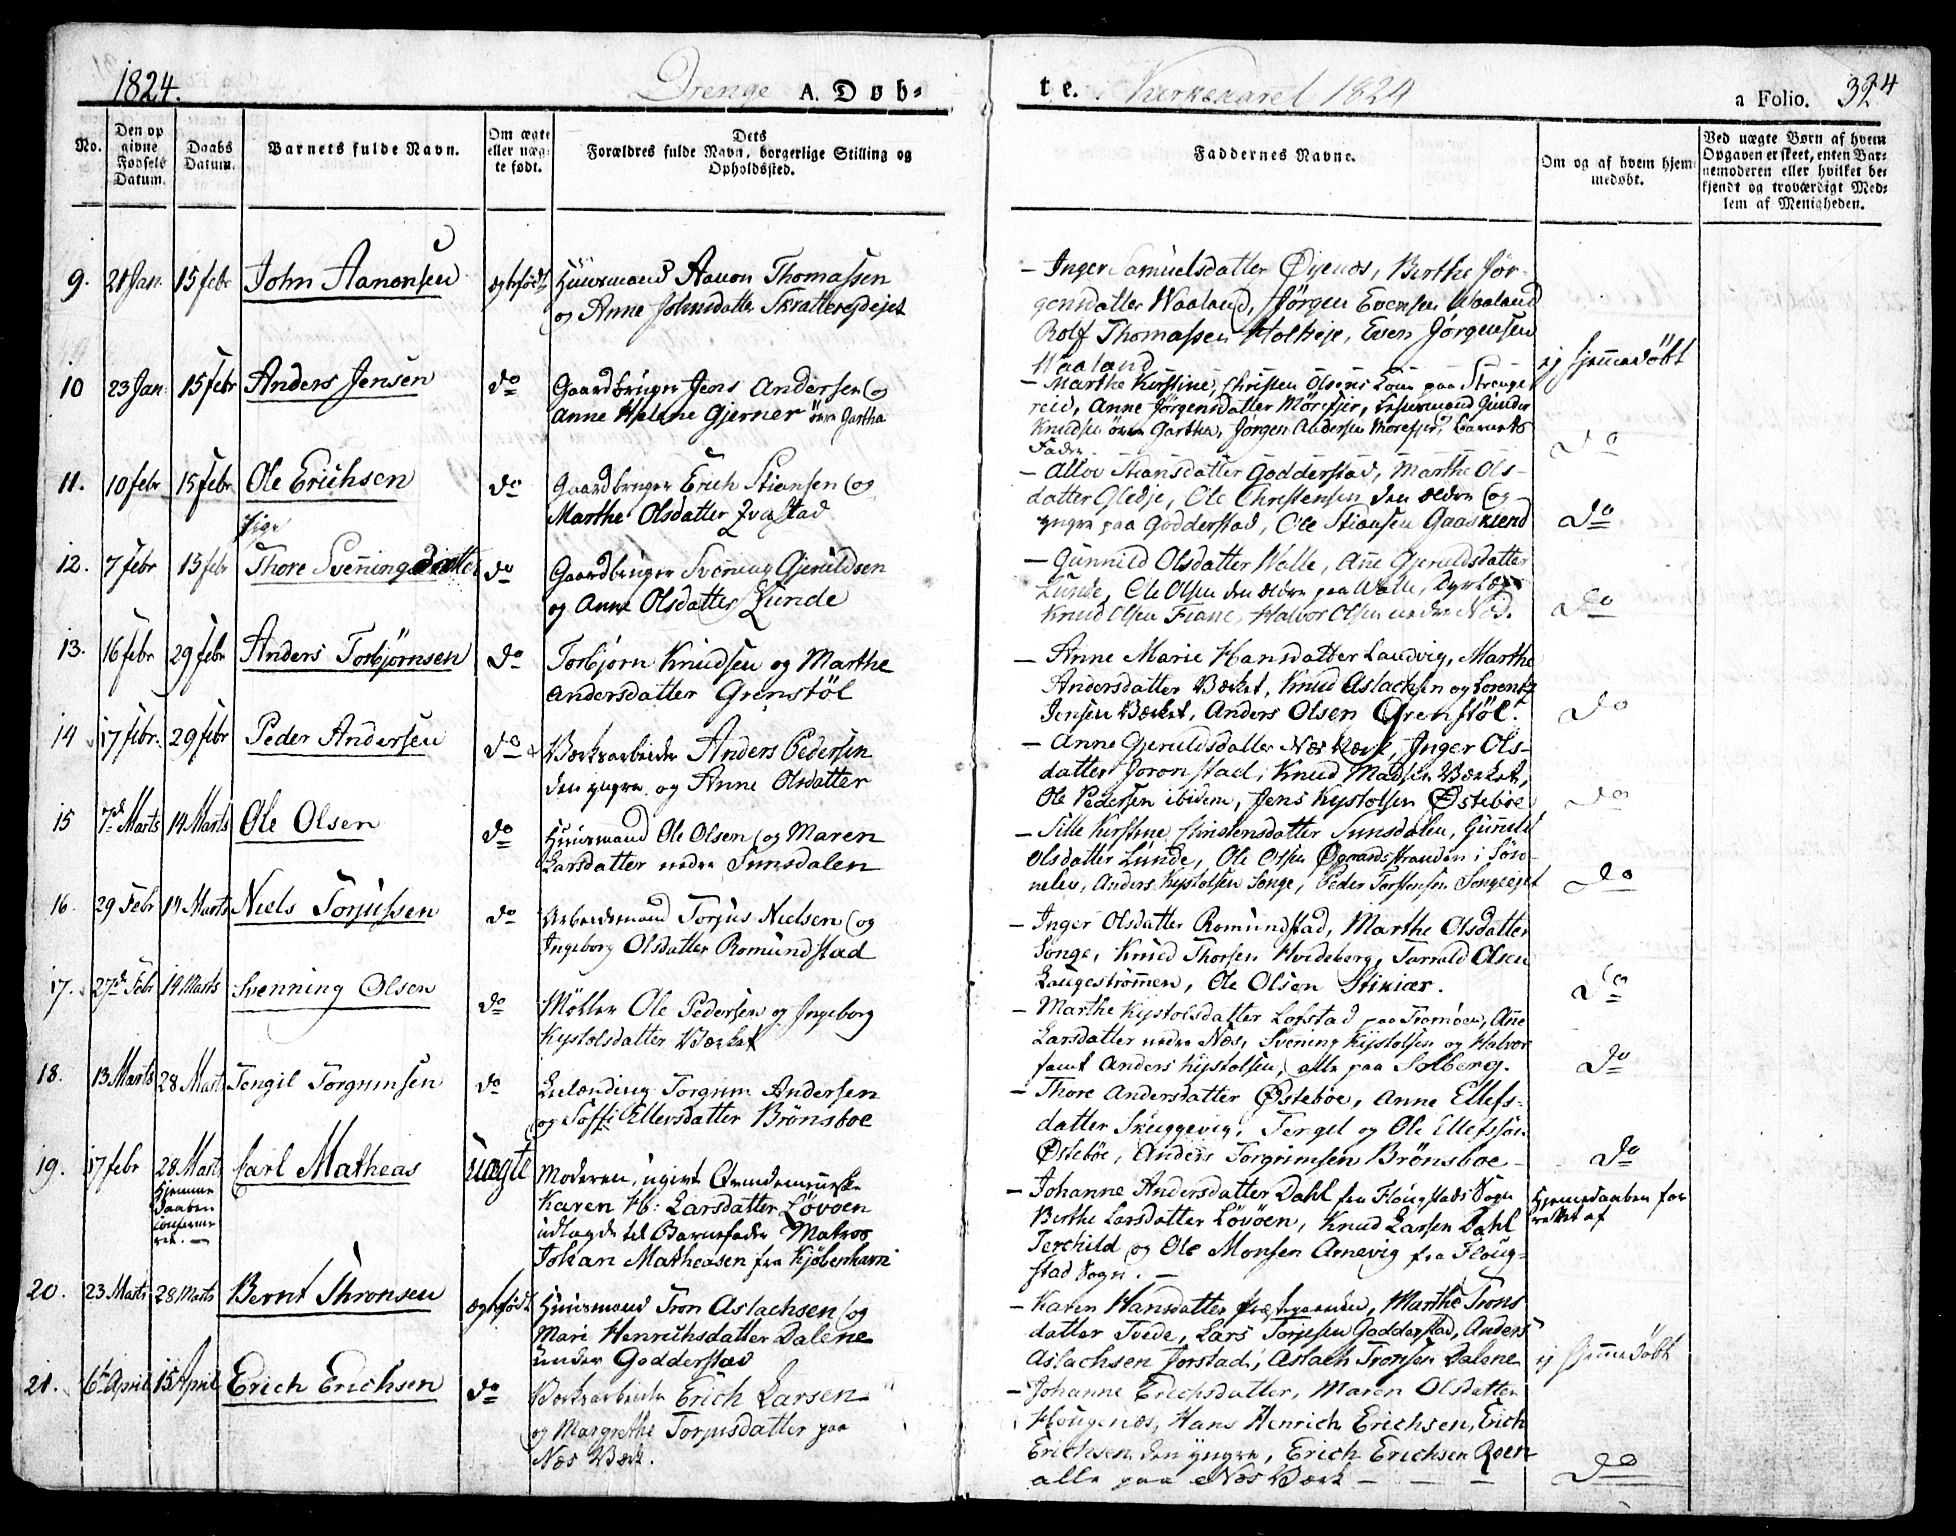 1824.
Drenge A. Døb=
te. Kirkeaaret 1824
a Folio. 324
No.
Den op
givne
Fødsels
Datum.
Daabs
Datum.
Barnets fulde Navn.
Om ægte
eller uæg-
te født.
Dets
Forældres fulde Navn, borgerlige Stilling og
Opholdssted.
Faddernes Navne.
Om og af hvem hjem-
medøbt.
Ved uægte Børn af hvem
Opgaven er skeet, enten Bar-
nemoderen eller hvilket be-
kjendt og troværdigt Med-
lem af Menigheden.
9. 21 Jan. 15 febr John Aanonsen ægtefødt Huusmand Aanon Thomassen
og Anne Johnsdatter
— Inger Samuelsdatter Øienæs, Birthe Jør-
gensdatter Waaland, Jørgen Evensen Waaland
Rolf Thomassen Holtheje, Even Jørgensen
Waaland
ej hjemmedøbt
10 23 Jan. 15 Febr Anders Jensen do Gaardbruger Jens Andersen og
Anne Helene Gjerner øvre Gartha
— Marthe Kirstine, Christen Olsens Kone paa Strenge-
reid, Anne Jørgensdatter Mørefjer, Gunder
Knudsen øvre Gartha, Jørgen Andersen Morefjer, Barnets
Fader
do
11. 10 febr 15 febr Ole Erichsen do Gaardbruger Erich Stiansen og
Marthe Olsdatter
— Stiansdatter Godderstad, Marthe Ols-
datter Gledje, Ole Christensen den ældre og
yngre paa Godderstad, Ole Stiansen Gaaskiend
do
Pige
12. 7 febr 15 febr Thore Svenningsdatter do Gaardbruger Svenning Gjeruldsen
og Anne Olsdatter Lunde
— Gunnild Olsdatter Walle, Anne Gjeruldsdatter
Lunde, Ole Olsen den ældre paa Walle,
Knud Olsen Fiane, Halvor Olsen nedre Næs.
do
13. 16 febr 29 febr Anders Torbjørnsen do Torbjørn Knudsen og Marthe
Andersdatter Grenstøl
— Anne Marie Hansdatter Landvig, Marthe
Andersdatter Værket, Knud Aslachsen og Lorentz
Jensen Værket, Anders Olsen Grenstøl.
do
14 17 febr. 29 febr Peder Andersen do Værksarbeider Anders Pedersen
den yngre og Anne Olsdatter
— Anne Gjeruldsdatter Næs Værk, Inger Ols-
datter Joronstad, Knud Madsen Værket,
Ole Pedersen ibidem, Jens Kystolsen Østebøe
do
15 7d Marts 14 Marts Ole Olsen do Huusmand Ole Olsen og Maren
Larsdatter nedre Sunsdalen
— Sille Kirstine Christensdatter Sunsdalen, Gunnild
Olsdatter Lunde, Ole Olsen Øgaardsstranden i Søn-
nelev, Anders Kystolsen Songe, Peder Torstensen Songeeiget
do
16. 29 Febr 14 Marts Niels Torjussen do Arbeidsmand Torjus Nielsen og
Ingeborg Olsdatter Romundstad
— Inger Olsdatter Romundstad, Marthe Olsdatter
Songe, Knud Thorsen Hvideberg, Tarrald Olsen
Laugestrømmen, Ole Olsen Stiniær.
do
17. 27d Febr 14 Marts Svenning Olsen do Møller Ole Pedersen og Ingeborg
Kystolsdatter Værket
— Marthe Kystolsdatter Lofstad paa Tromøen, Anne
Larsdatter nedre Næs, Svening Kystolsen og Halvor
samt Anders Kystolsen, alle paa Solberg.
do
18. 13 Marts 28 Mart Tengil Torgrimsen do Leilænding Torgrim Andersen
og Soffi Ellevsdatter Brønsboe
— Thore Andersdatter Østeboe, Anne Ellefs-
datter Skuggevig, Tergel og Ole Ellefssøn
Østebøe, Anders Torgrimsen Brønsboe —
do
19. 17 febr 28 Mart
Hjemme
Daaben
confirme
ret. —
Carl Matheas uægte Moderen, ugivt
Karen M: Larsdatter Løvøen
udlagde til Barnefader Matros
Johan Matheasen fra Kjøbenhavn
— Johanne Andersdatter Dahl fra Flougstads Sogn
Birthe Larsdatter Løvøen, Knud Larsen Dahl
Terchild og Ole Monsen Arnevig fra Floug-
stad Sogn. —
Hjemmedaaben for
rettet af
20. 23 Marts 28 Marts Bernt Thronsen ægtefødt Huusmand Tron Aslachsen og
Mari Henrichsdatter Dalene
under Godderstad
— Karen Hansdatter, Marthe Trons
datter Tvede, Lars Torjesen Godderstad, Anders
Aslachsen Jorstad, Aslach Tronsen Dalene
ej hjemmedøbt
21. 6t April 15 April Erich Erichsen do Værksarbeider Erich Larsen
og Margrethe Torjusdatter paa
Næs Værk.
— Johanne Erichsdatter, Maren Olsdatter
Hougenæs, Hans Henrich Erichsen, Erich
Erichsen den yngre, Erich Erichsen Roen
alle paa Næs Værk — — —
do